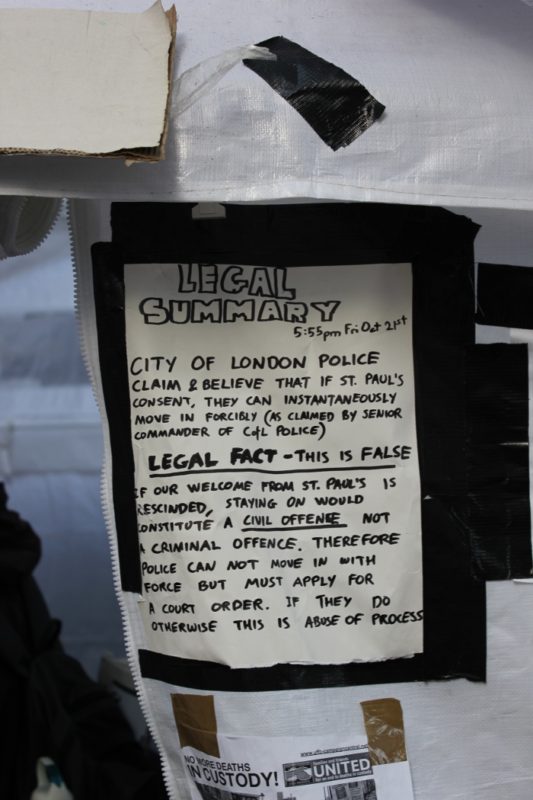 LEGAL
SUMMARY
5:55pm Fri Oct 21st
CITY OF LONDON POLICE
CLAIM & BELIEVE THAT IF ST. PAUL'S
CONSENT, THEY CAN INSTANTANEOUSLY
MOVE IN FORCIBLY (AS CLAIMED BY SENIOR
COMMANDER OF CofL POLICE)
LEGAL FACT - THIS IS FALSE
IF OUR WELCOME FROM ST. PAUL'S IS
RESCINDED, STAYING ON WOULD
CONSTITUTE A CIVIL OFFENCE NOT
A CRIMINAL OFFENCE. THEREFORE
POLICE CAN NOT MOVE IN WITH
FORCE BUT MUST APPLY FOR
A COURT ORDER. IF THEY DO
OTHERWISE THIS IS ABUSE OF PROCESS
NO MORE DEATHS
IN CUSTODY!
UNITED